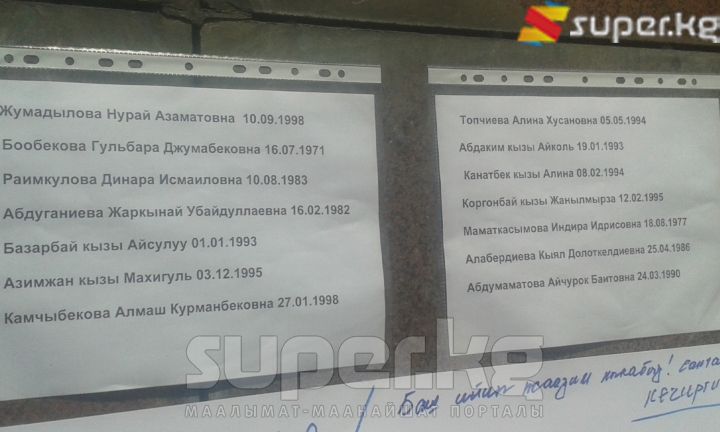 super.kg
Жумадылова Нурай Азаматовна 10.09.1998
Бообекова Гульбара Джумабековна 16.07.1971
Раимкулова Динара Исмаиловна 10.08.1983
Абдуганиева Жаркынай Убайдуллаевна 16.02.1982
Базарбай кызы Айсулуу 01.01.1993
Азимжан кызы Махигуль 03.12.1995
Камчыбекова Алмаш Курманбековна 27.01.1998
Топчиева Алина Хусановна 05.05.1994
Абдаким кызы Айколь 19.01.1993
Канатбек кызы Алина 08.02.1994
Коргонбай кызы Жанылмырза 12.02.1995
Маматкасымова Индира Идрисовна 18.08.1977
Алабердиева Кыял Долоткелдиевна 25.04.1986
Абдумаматова Айчурок Баитовна 24.03.1990
super.kg
МААЛЫМАТ-МААНАЙШАТ ПОРТАЛЫ